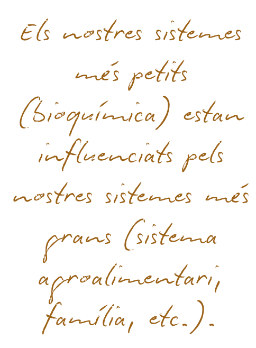 Els nostres sistemes
més petits
(bioquímica) estan
influenciats pels
nostres sistemes més
grans (sistema
agroalimentari,
família, etc.).